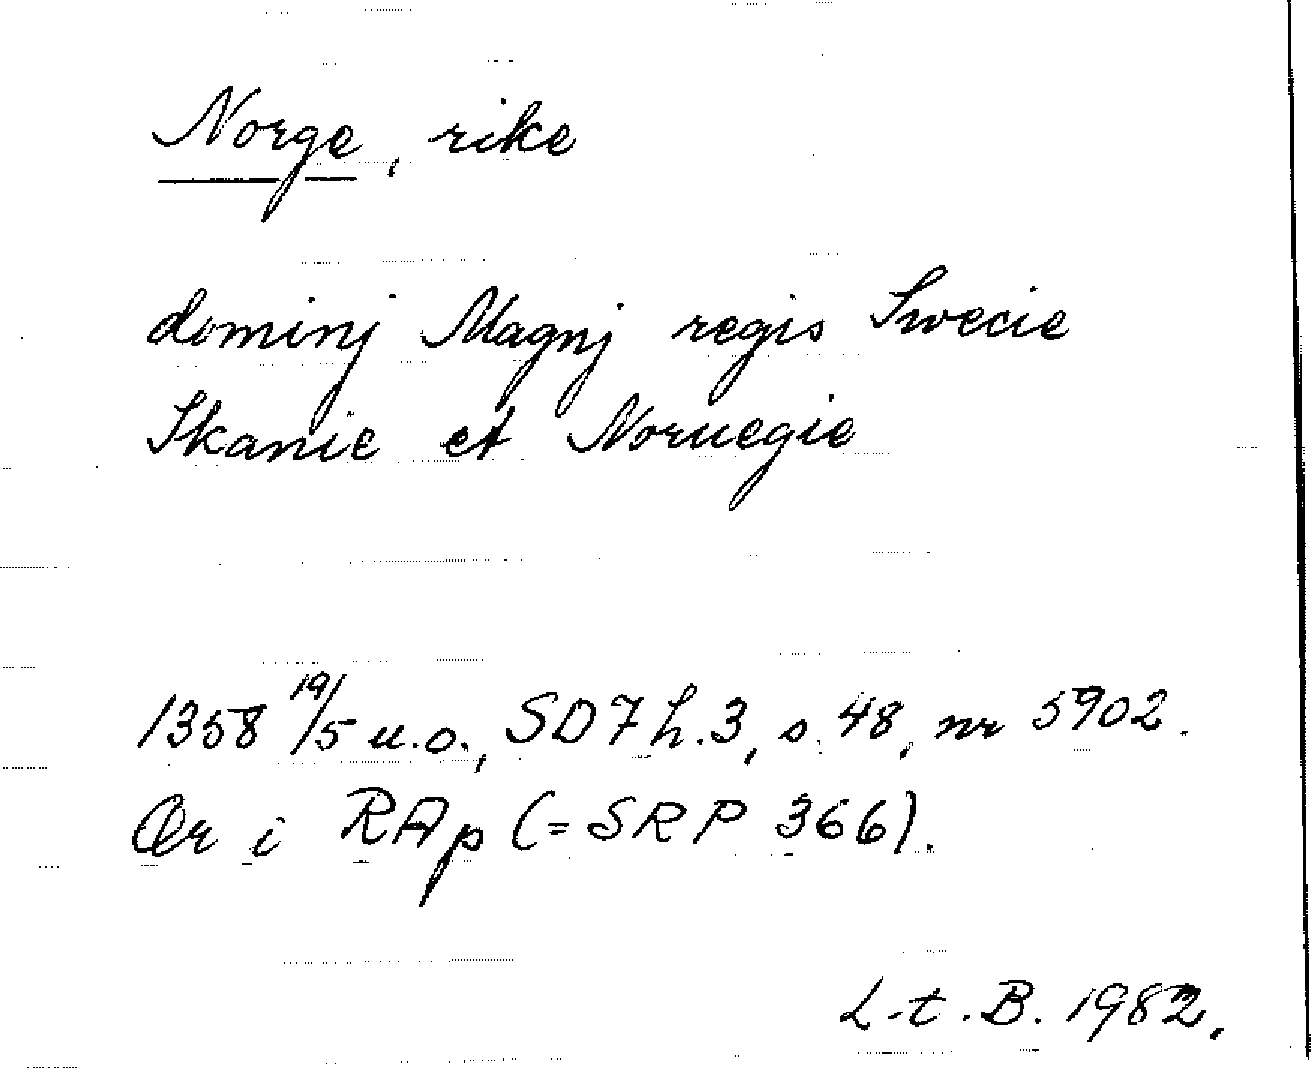 Norge, rike
dominj Magnj regis Swecie
Skanie et Noruegie
1358 19/5 u.o., SD7 h.3, s. 48, nr 5902.
Or i RAp (= SRP 366).
L-t.B. 1982.